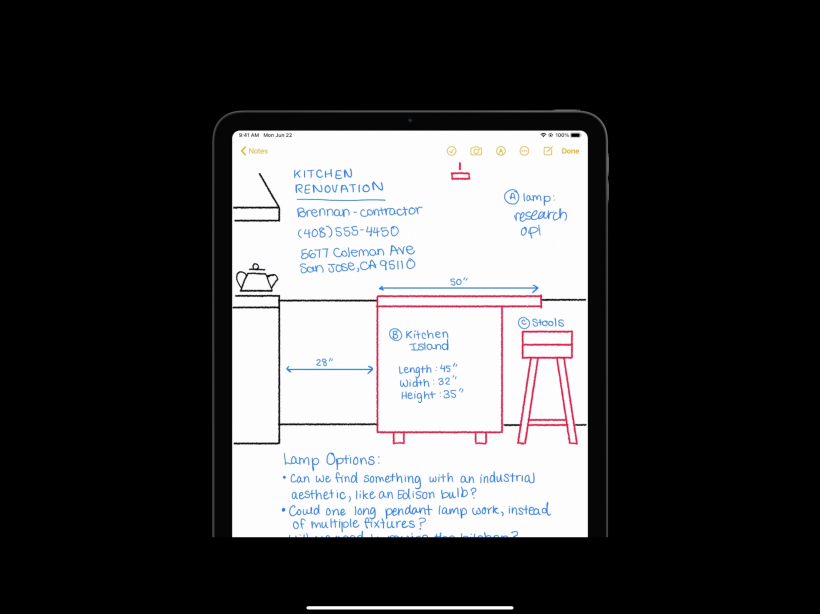 9:41 AM Mon Jun 22
100%
Notes
Done
KITCHEN
RENOVATION
Brennan-contractor
(408)555-4450
5677 Coleman Ave
San Jose, CA 95110
A lamp:
research
opl
50"
B Kitchen
Island
Length: 45"
Width: 32"
Height: 35"
28"
C Stools
Lamp Options:
• Can we find something with an industrial
aesthetic, like an Edison bulb?
• Could one long pendant lamp work, instead
of multiple fixtures?